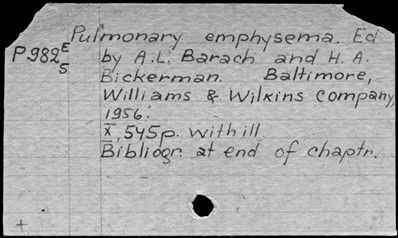 Pulmonary emphysema. Ed
P982 E5 by A.L. Barach and H. A.
Bickerman. Baltimore,
Williams & Wilkins Company,
1956.
X, 545p. with ill.
Bibliogr. at end of chaptr.
+